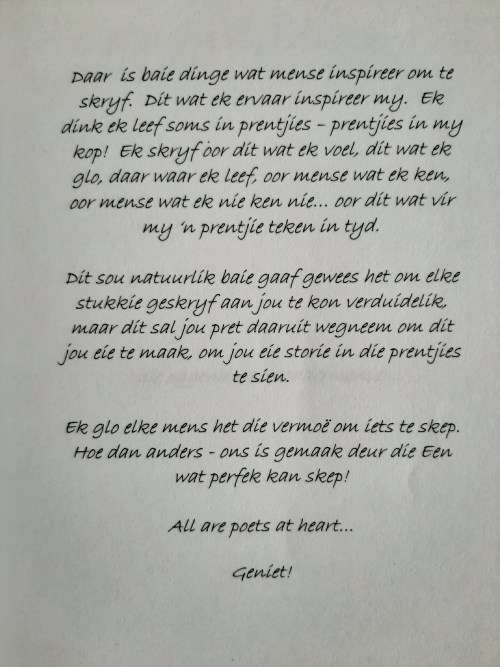 Daar is baie dinge wat mense inspireer om te
skryf. Dit wat ek ervaar inspireer my. Ek
dink ek leef soms in prentjies – prentjies in my
kop! Ek skryf oor dit wat ek voel, dit wat ek
glo, daar waar ek leef, oor mense wat ek ken,
oor mense wat ek nie ken nie... oor dit wat vir
my 'n prentjie teken in tyd.
Dit sou natuurlik baie gaaf gewees het om elke
stukkie geskryf aan jou te kon verduidelik,
maar dit sal jou pret daaruit wegneem om dit
jou eie te maak, om jou eie storie in die prentjies
te sien.
Ek glo elke mens het die vermoë om iets te skep.
Hoe dan anders - ons is gemaak deur die Een
wat perfek kan skep!
All are poets at heart...
Geniet!